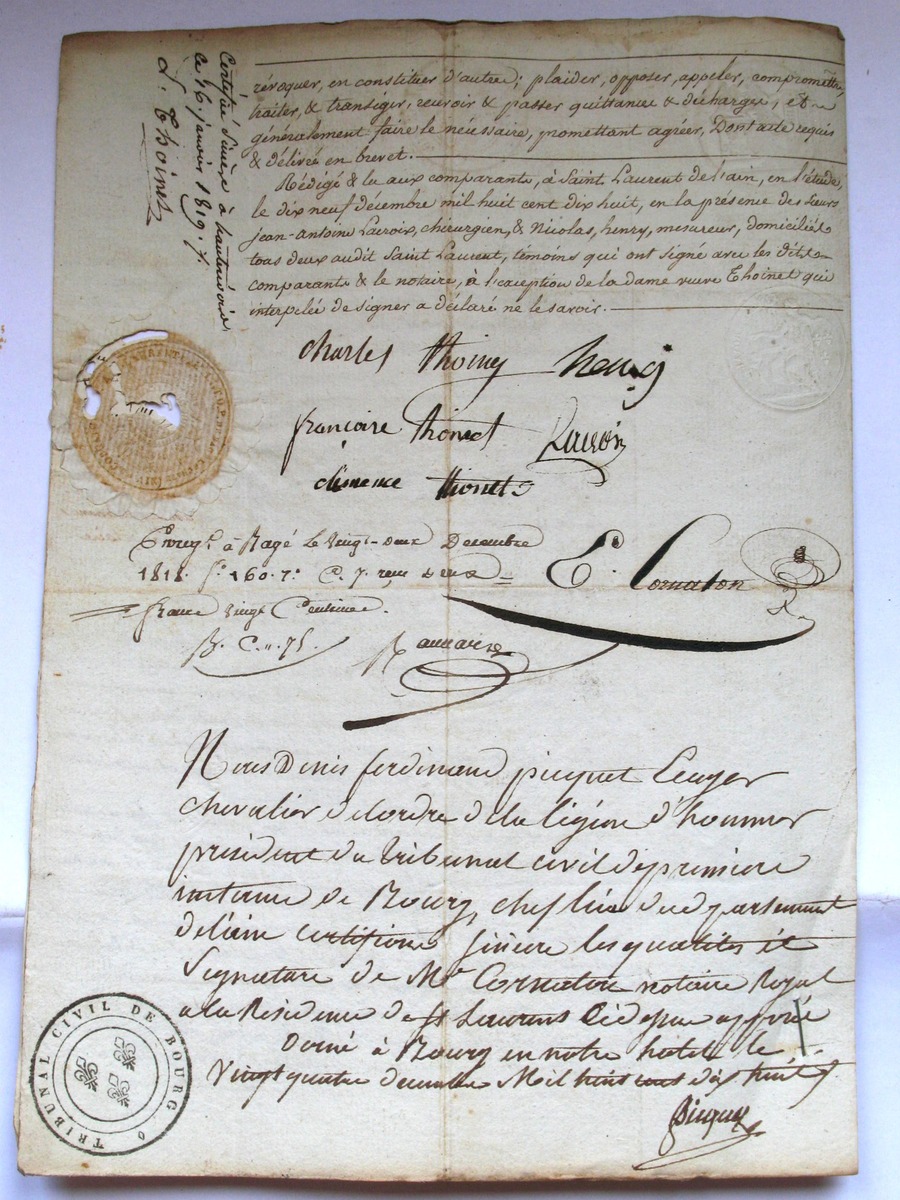 Certifié sincère à hautevoire
ce 16. janvier 1819.
L. Thoinet
révoquer, en constituer d'autre; plaider, opposer, appeler, compromettre,
traiter, & transiger, recevoir & passer quittances & décharges, et
généralement faire le nécessaire, promettant agréer, Dont acte requis
& délivré en brevet.
Rédigé & lu aux comparants, à Saint Laurent de l'ain, en l'étude,
le dix neuf décembre mil huit cent dix huit, en la présence des sieurs
jean-antoine Lacroix, chirurgien, & Nicolas, henry, mesureur, domiciliés
tous deux audit Saint Laurent, témoins qui ont signé avec les dits
comparants & le notaire, à l'exception de la dame veuve Thoinet qui
interpelée de signer a déclaré ne le savoir.
charles thoiney henry
francoise thoinet Lacroix
clémence thoinet
à Bagé Le vingt-deux Decembre
1818. f.° 160. r.° C. 7. reçu deux
francs vingt Centimes.
Cornaton
Nous Denis ferdinand picquet Ecuyer
chevalier de lordre de la légion d'honneur
président du tribunal civil de premiere
instance de Bourg, chef lieu du departement
de l'ain certifions sincere les qualités et
Signature de Me Cornaton notaire Royal
a la Residence de St Laurent Ci dessus apposée
Donné à Bourg en notre hotel le
Vingt quatre decembre Mil huit cent dix huit
Picquet
TRIBUNAL CIVIL DE BOURG